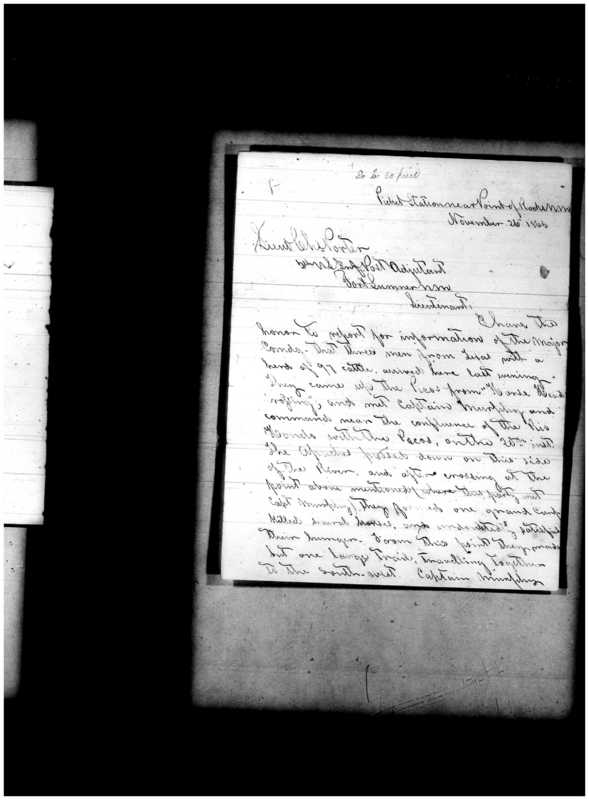 To be copied
Picket Station near Point of Rocks NM
November 26" 1865
Lieut C. H. Porter
5th U.S. Inf. Post Adjutant
Fort Sumner NM
Lieutenant,
I have the
honor to report for information of the Major
Comdg. that three men from Texas with a
herd of 97 cattle, arrived here last evening.
They came up the Pecos from "Horse Head
", and met Captain Murphy and
command near the confluence of the Rio
Hondo with the Pecos, on the 20th inst
The Apaches passed down on this side
of the River and after crossing at the
point above mentioned, where this party met
Capt Murphy, they one grand Camp
Killed several horses, and , & satisfied
their hunger. From this point they made
but one large trail, travelling together
to the south-west. Captain Murphy